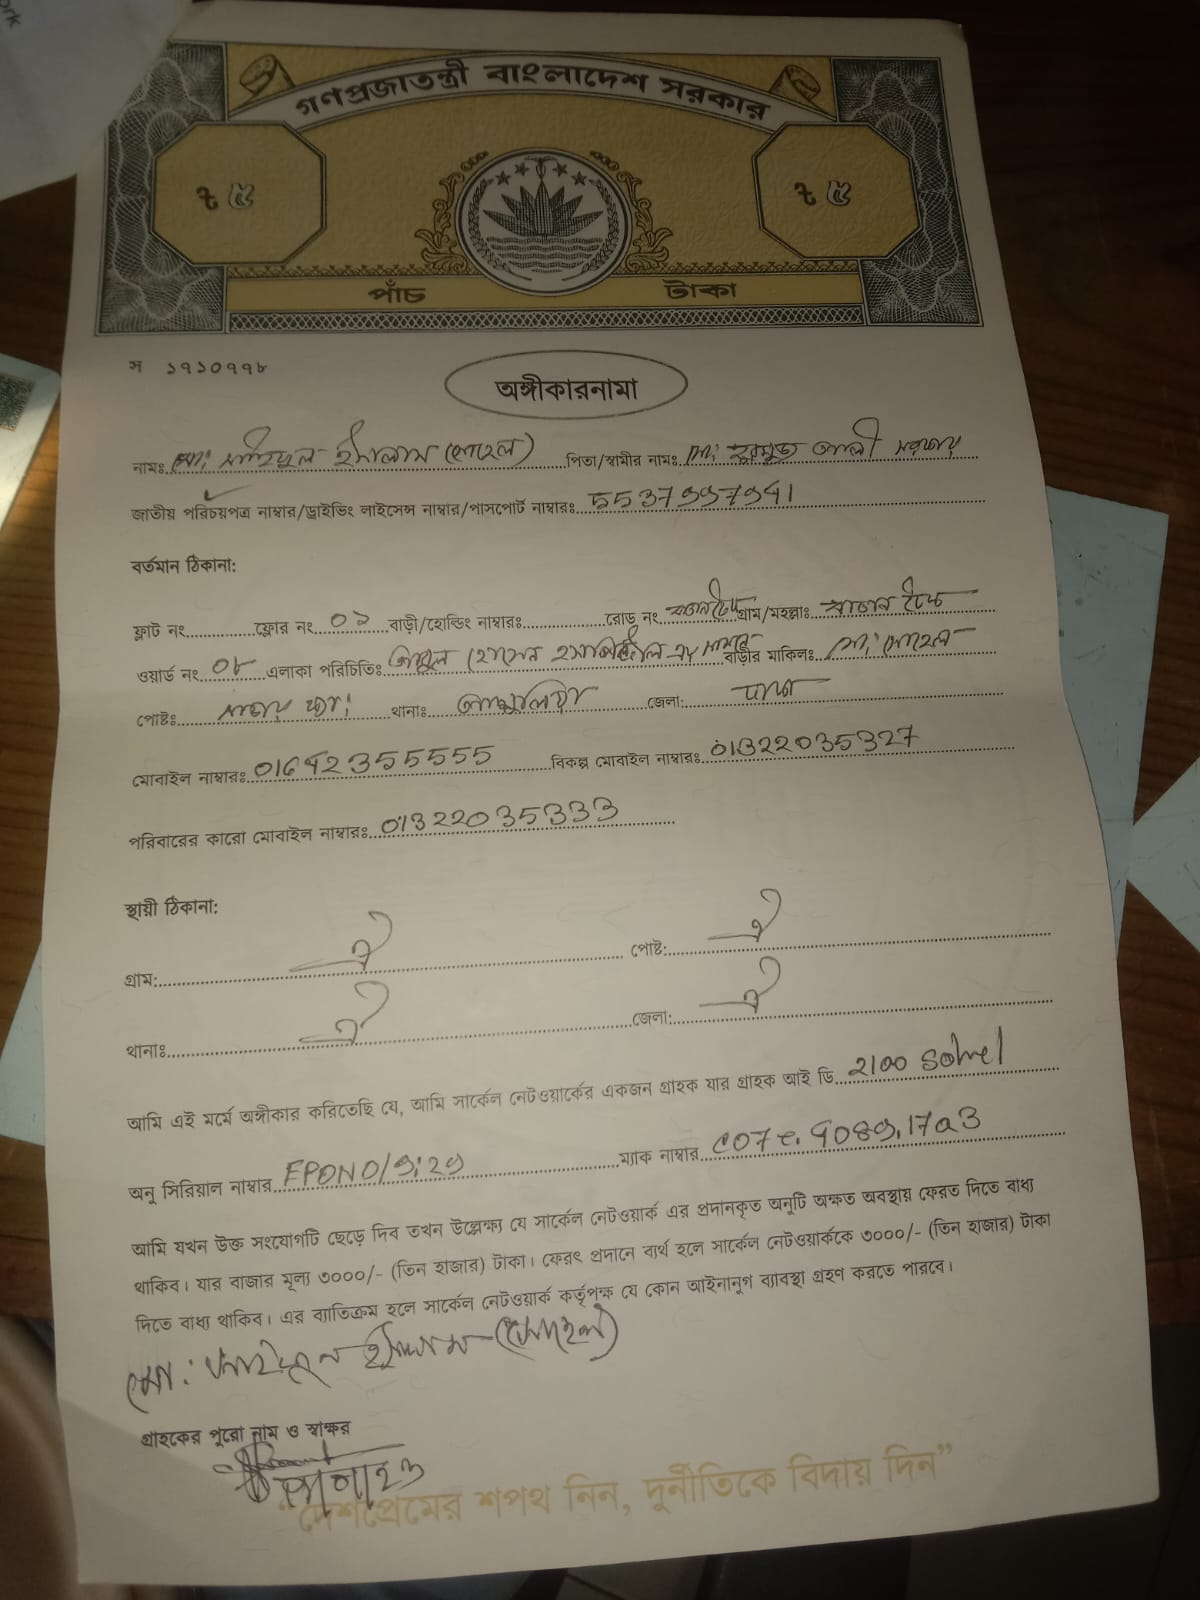 গণপ্রজাতন্ত্রী বাংলাদেশ সরকার
৳ ৫ ৳ ৫
পাঁচ টাকা
স ১৭১০৭৭৮
অঙ্গীকারনামা
নামঃ মোঃ ইসলাম (সোহেল) পিতা/স্বামীর নামঃ মোঃ আলী
জাতীয় পরিচয়পত্র নাম্বার/ড্রাইভিং লাইসেন্স নাম্বার/পাসপোর্ট নাম্বারঃ
বর্তমান ঠিকানা:
ফ্লাট নং ফ্লোর নং ০১ বাড়ী/হোল্ডিং নাম্বারঃ রোড নং গ্রাম/মহল্লাঃ
ওয়ার্ড নং ০৮ এলাকা পরিচিতিঃ বাড়ীর মালিকঃ মোঃ সোহেল
পোষ্টঃ থানাঃ জেলা: ঢাকা
মোবাইল নাম্বারঃ 01642355555 বিকল্প মোবাইল নাম্বারঃ 01322035327
পরিবারের কারো মোবাইল নাম্বারঃ 01322035333
স্থায়ী ঠিকানা:
গ্রাম: ঐ পোষ্ট: ঐ
থানাঃ ঐ জেলা: ঐ
আমি এই মর্মে অঙ্গীকার করিতেছি যে, আমি সার্কেল নেটওয়ার্কের একজন গ্রাহক যার গ্রাহক আই ডি 2100 Sohel
অনু সিরিয়াল নাম্বার EPON0/9:29 ম্যাক নাম্বার
আমি যখন উক্ত সংযোগটি ছেড়ে দিব তখন উল্লেক্ষ্য যে সার্কেল নেটওয়ার্ক এর প্রদানকৃত অনুটি অক্ষত অবস্থায় ফেরত দিতে বাধ্য
থাকিব। যার বাজার মূল্য ৩০০০/- (তিন হাজার) টাকা। ফেরৎ প্রদানে ব্যর্থ হলে সার্কেল নেটওয়ার্ককে ৩০০০/- (তিন হাজার) টাকা
দিতে বাধ্য থাকিব। এর ব্যাতিক্রম হলে সার্কেল নেটওয়ার্ক কর্তৃপক্ষ যে কোন আইনানুগ ব্যাবস্থা গ্রহণ করতে পারবে।
মোঃ ইসলাম (সোহেল)
গ্রাহকের পুরো নাম ও স্বাক্ষর
“দেশপ্রেমের শপথ নিন, দুর্নীতিকে বিদায় দিন”